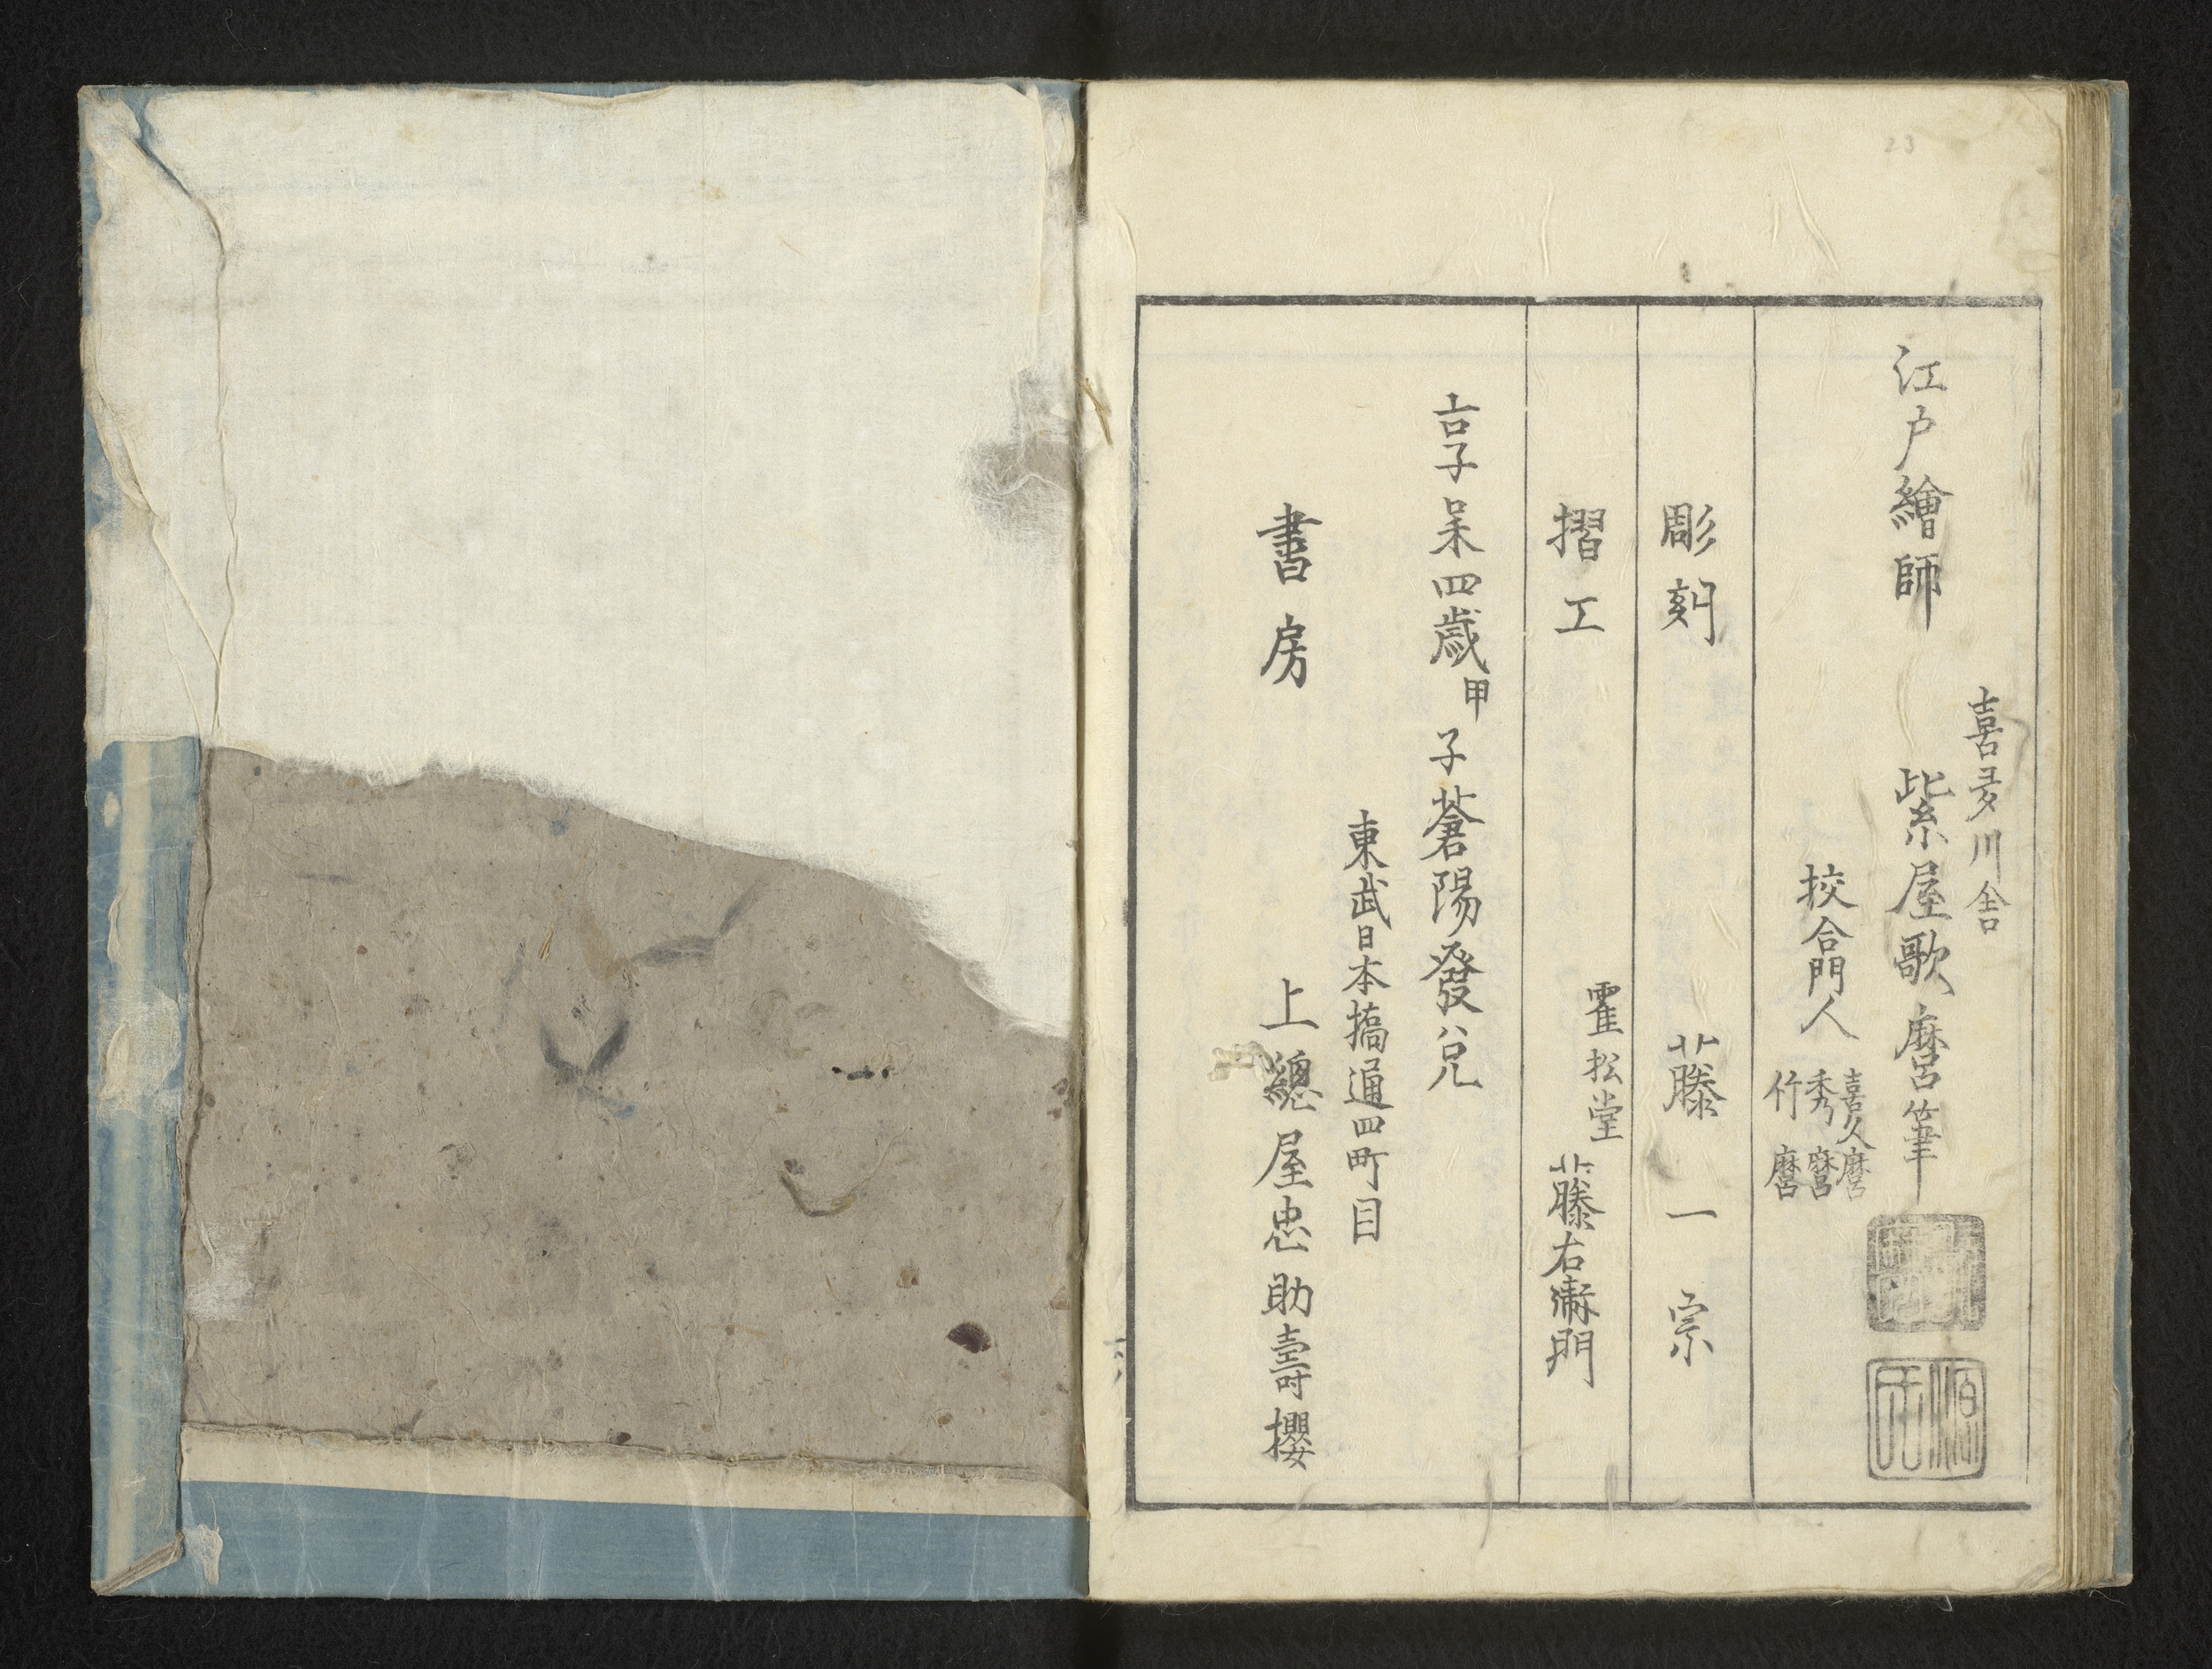 23
江戸繪師
喜多川舎
紫屋歌麿筆
校合門人
喜久麿
秀麿
竹麿
彫刻 藤一宗
摺工
霍松堂
藤右衞門
享和四歳甲子蒼陽發兌
東武日本橋通四町目
書房 上總屋忠助壽櫻